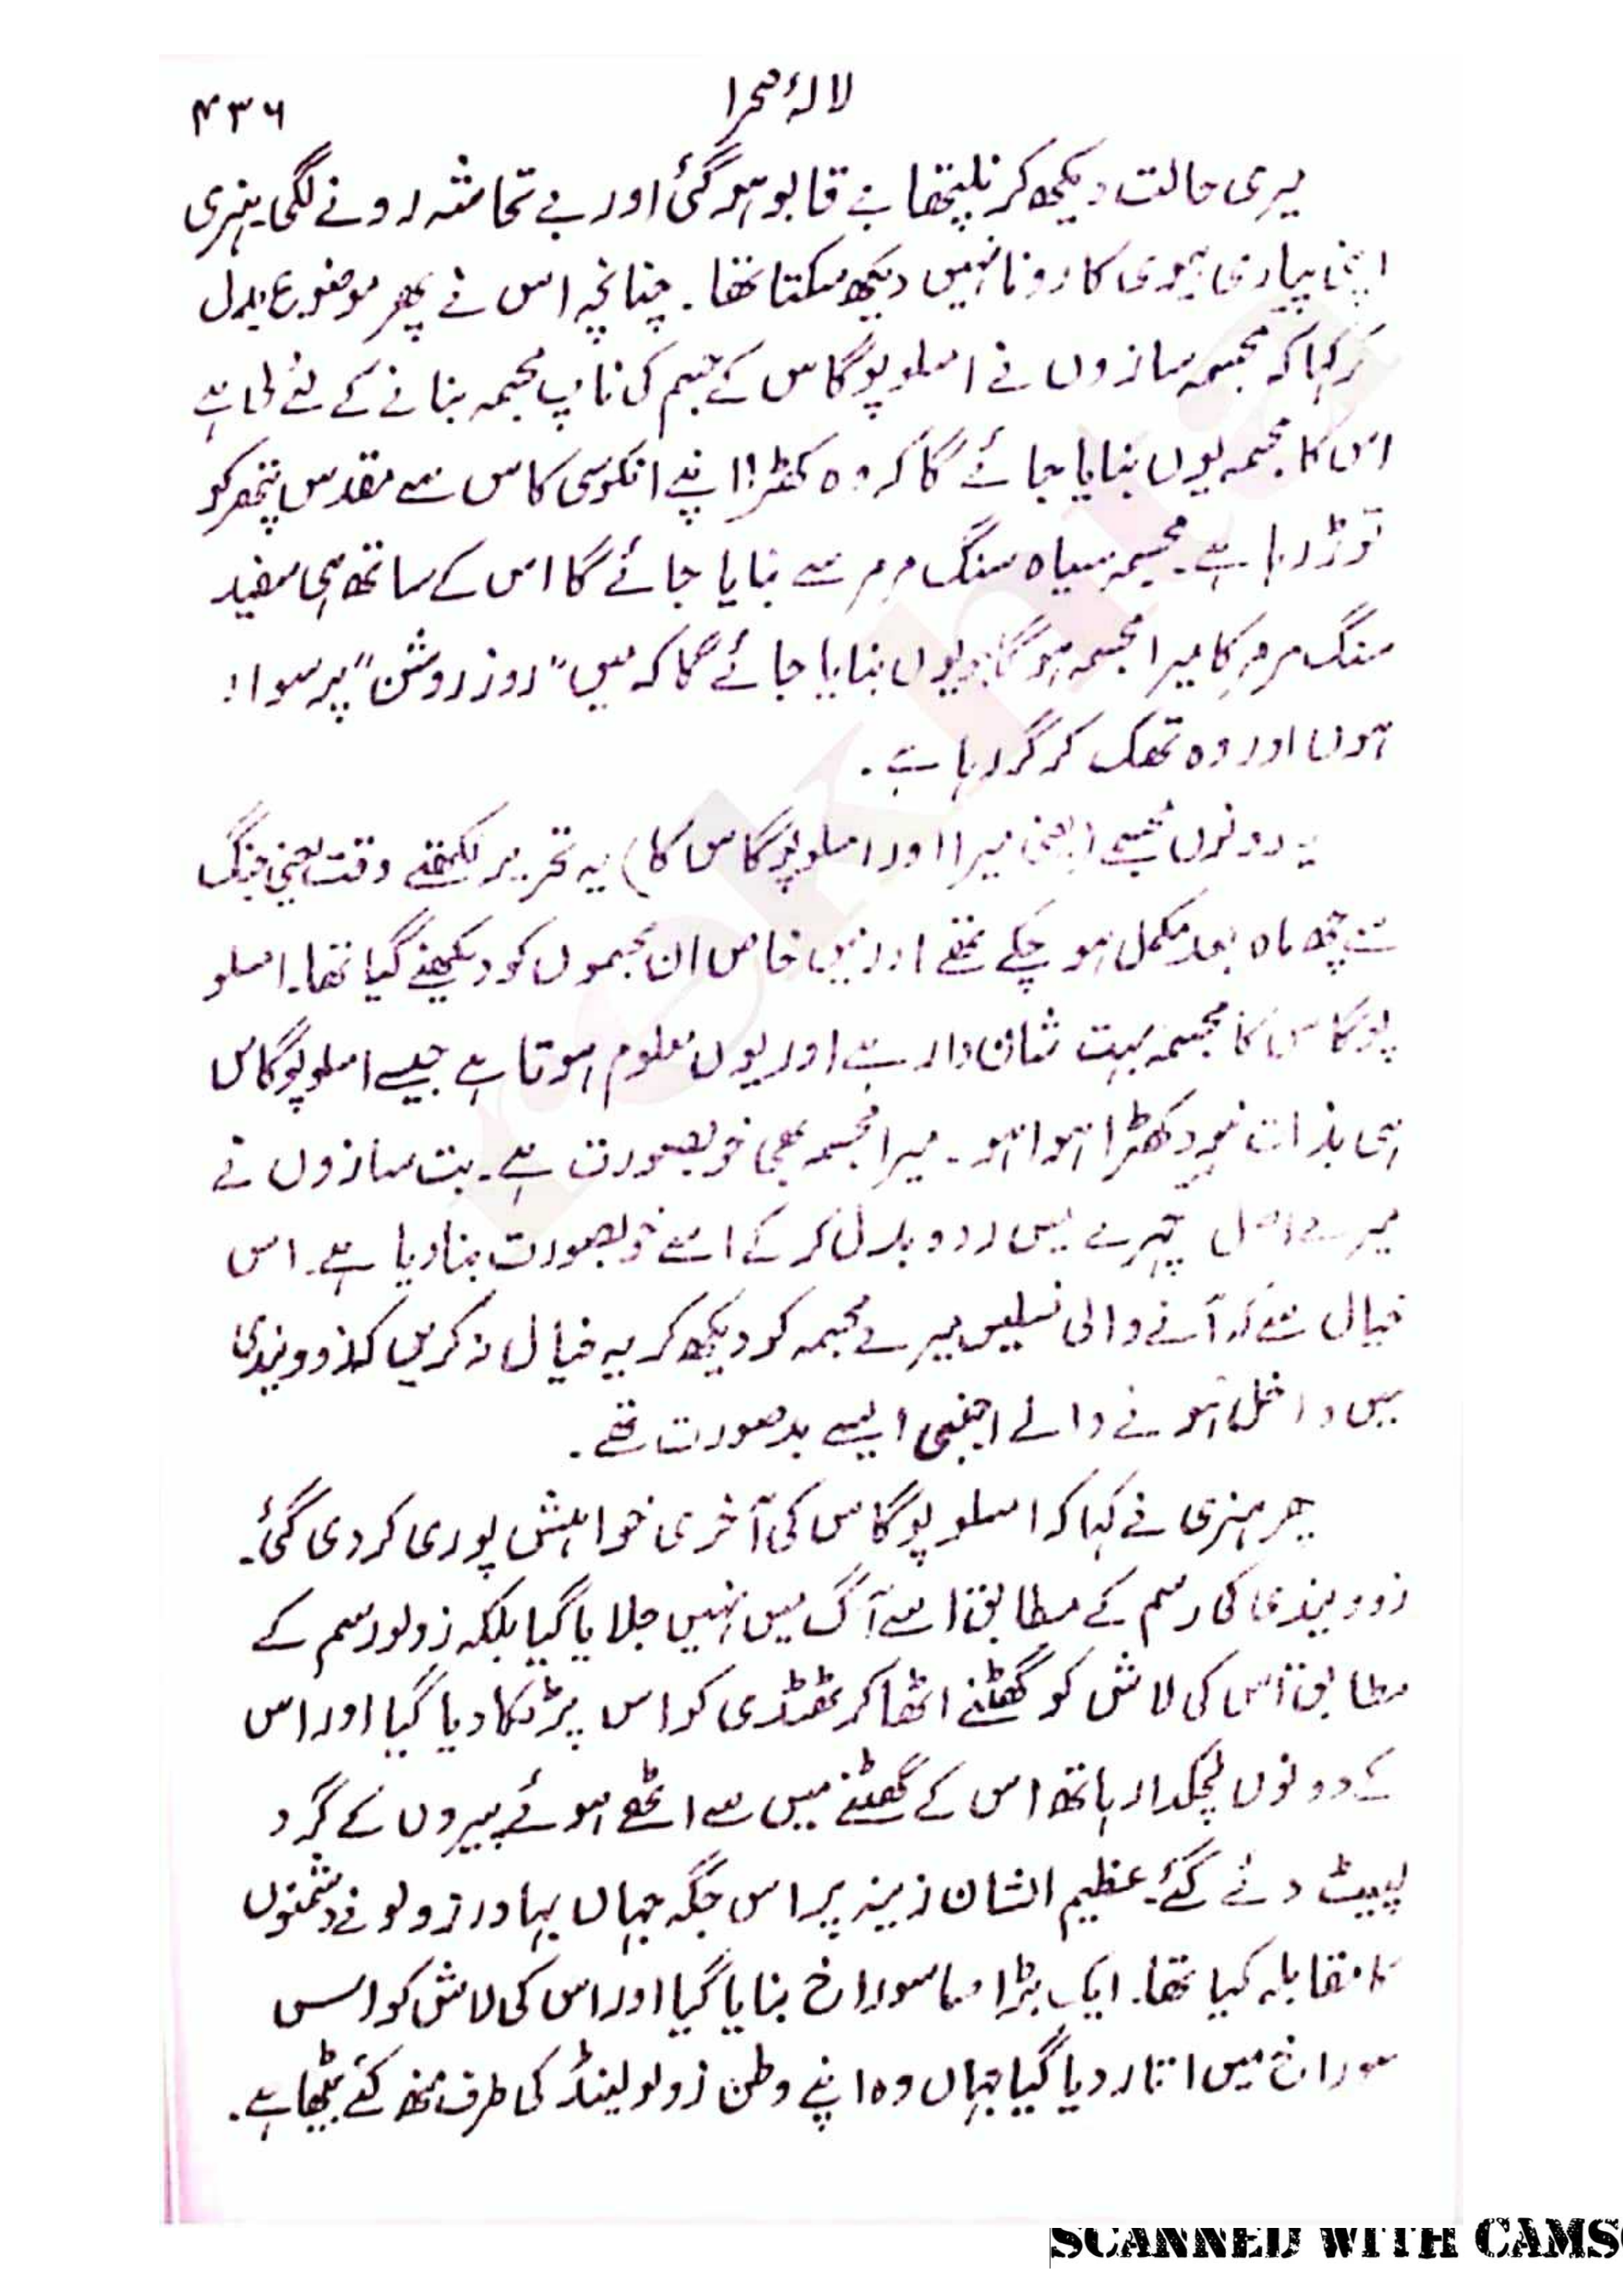 لالۂ صحرا
۴۳۶
میری حالت دیکھ کر نلیپتھا بے قابو ہو گئی اور بے تحاشہ رونے لگی۔ ہنری
اپنی پیاری بیوی کا رونا نہیں دیکھ سکتا تھا۔ چنانچہ اس نے پھر موضوع بدل
کر کہا کہ مجسمہ سازوں نے املوپوگاس کے جسم کی ناپ مجسمہ بنانے کے لئے لی ہے
اس کا مجسمہ یوں بنایا جائے گا کہ وہ کھڑا اپنے انکوسی کاس سے مقدس پتھر کو
توڑ رہا ہے۔ مجسمہ سیاہ سنگ مرمر سے بنایا جائے گا اس کے ساتھ ہی سفید
سنگ مرمر کا میرا مجسمہ ہو گا جو یوں بنایا جائے گا کہ میں "روز روشن" پر سوار
ہوں اور وہ تھک کر گر رہا ہے۔
یہ دونوں مجسمے (یعنی میرا اور املوپوگاس کا) یہ تحریر لکھتے وقت یعنی جنگ
کے چھ ماہ بعد مکمل ہو چکے تھے اور میں خاص ان مجسموں کو دیکھنے گیا تھا۔ املو
پوگاس کا مجسمہ بہت شان دار ہے اور یوں معلوم ہوتا ہے جیسے املوپوگاس
ہی بذات خود کھڑا ہوا ہو۔ میرا مجسمہ بھی خوبصورت ہے۔ بت سازوں نے
میرے اصل چہرے میں ردوبدل کر کے اسے خوبصورت بنا دیا ہے۔ اس
خیال سے کہ آنے والی نسلیں میرے مجسمہ کو دیکھ کر یہ خیال نہ کریں کہ زوویندی
میں داخل ہونے والے اجنبی ایسے بدصورت تھے۔
پھر ہنری نے کہا کہ املوپوگاس کی آخری خواہش پوری کر دی گئی۔
زوویندی کی رسم کے مطابق اسے آگ میں نہیں جلایا گیا بلکہ زولو رسم کے
مطابق اس کی لاش کو گھٹنے اٹھا کر ٹھڈی کو اس پر ٹکا دیا گیا اور اس
کے دونوں لچکدار ہاتھ اس کے گھٹنے میں سے اٹھے ہوئے پیروں کے گرد
لپیٹ دئے گئے۔ عظیم الشان زینہ پر اس جگہ جہاں بہادر زولو نے دشمنوں
کا مقابلہ کیا تھا۔ ایک بڑا سا سوراخ بنایا گیا اور اس کی لاش کو اس
سوراخ میں اتار دیا گیا جہاں وہ اپنے وطن زولولینڈ کی طرف منھ کئے بیٹھا ہے۔
rekhta
SCANNED WITH CAMS